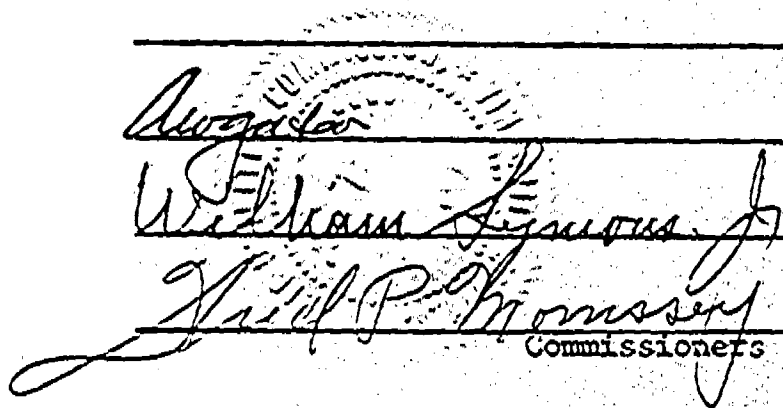 William Symons Jr
Fred P. Morrissey
Commissioners